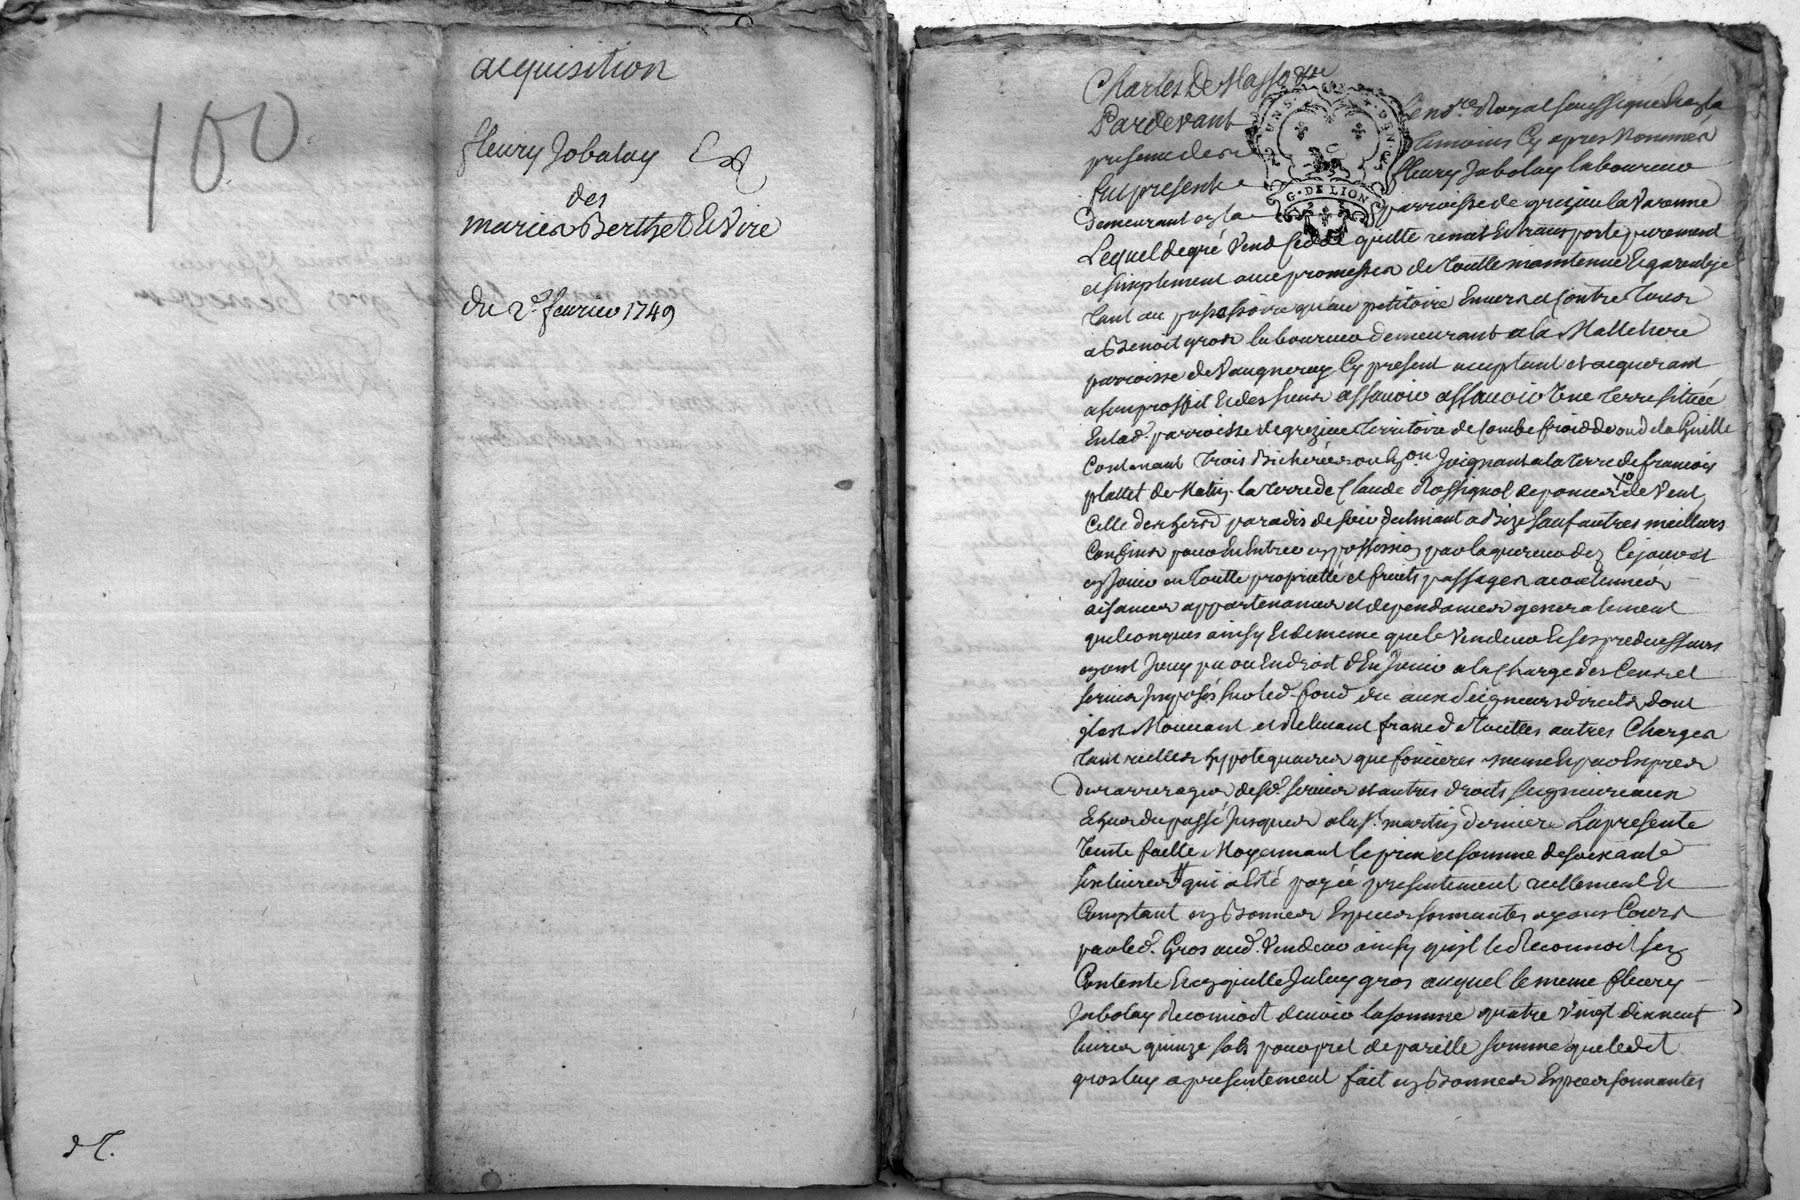 100
acquisition
fleury Jobalay
des
maries Berthet & Vire
du 2e. fevrier 1749
d T.
Charles De Masso
G. DE LION
Pardevant le no.re Royal soussigné & en la
presence des temoins cy apres nommés
fut present fleury Jabolay laboureur
demeurant en la parroisse de grezieu la Varenne
Lequel de gré vend cedde quitte remet et transporte purement
et simplement avec promesses de toutte maintenue & garentye
tant au possessoire qu'au petitoire Envers et contre tous
a Benoit gros laboureur demeurant a la Mallehere
parroisse de Vaugneray Cy present acceptant et acquerant
a son proffit & des siens assavoir assavoir une terre située
En lad. parroisse de grezieu territoire de Combe froidde ou de la Guille
Contenant trois bicherées ou En.on Joignant a la terre de francois
plattet de matin la terre de Claude Rossignol de vent
Celle des hers paradis de soir declinant a Bize sauf autres meilleurs
Confins pour En Entrer en possession par laquereur dez Cejourd
en Jouir en toutte proprietté et fruits passages acoutumés
aisances appartenances et dependances generalement
quelconques ainsy & de meme que le vendeur & ses predecesseurs
ayant Jouy pu ou En droit d'En Jouir a la Charge des Cens et
servis Imposés sur led. fond du aux Seigneurs directs dont
il est Mouvant et Relevant franc de touttes autres Charges
tant reelles hypotequaires que foncieres meme Expres
des arrerages desd. servis et autres droits seigneuriaux
Echus du passé Jusques a la St. martin derniere La presente
Vente faitte Moyennant le prix et somme de soixante
six livres qui a Eté payée presentement reellement &
Comptant en Bonnes Especes sonnantes ayans Cours
par led. Gros aud. vendeur ainsy qu'il le Reconnoit s'en
Contente & en quitte Iceluy gros auquel le meme fleury
Jabolay Reconnoit devoir la somme quatre vingt dix neuf
livres quinze sols pour pret de pareille somme que ledit
gros luy a presentement fait en Bonnes Especes sonnantes